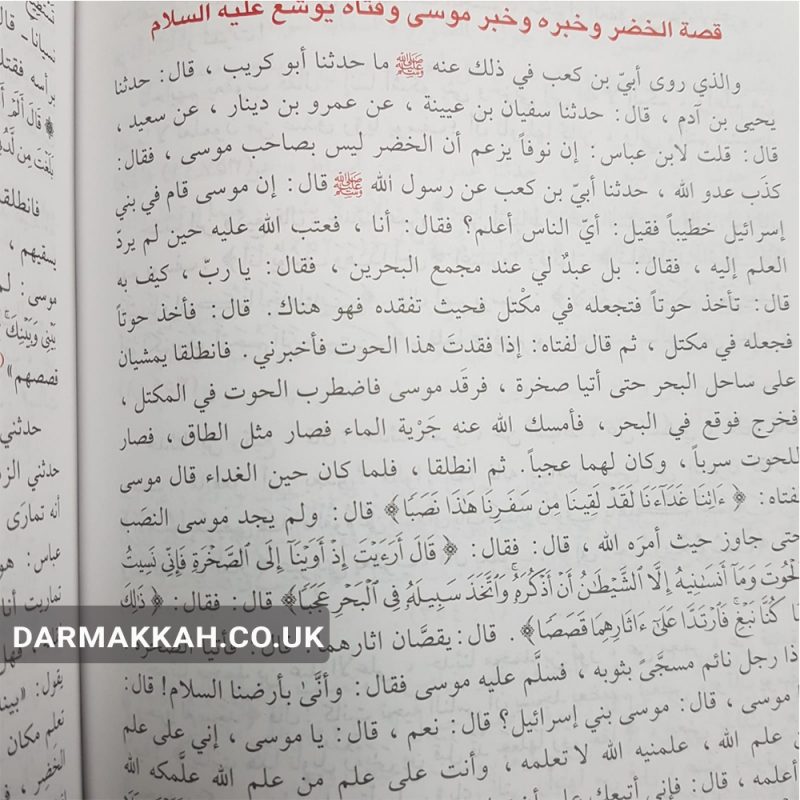 قصة الخضر وخبره وخبر موسى وفتاه يوشع عليه السلام
والذي روى أبيّ بن كعب في ذلك عنه ﷺ ما حدثنا أبو كريب ، قال: حدثنا
يحيى بن آدم ، قال: حدثنا سفيان بن عيينة ، عن عمرو بن دينار ، عن سعيد ،
قال: قلت لابن عباس: إن نوفاً يزعم أن الخضر ليس بصاحب موسى ، فقال:
كذَب عدو الله ، حدثنا أبيّ بن كعب عن رسول الله ﷺ قال: إن موسى قام في بني
إسرائيل خطيباً فقيل: أيّ الناس أعلم؟ فقال: أنا ، فعتب الله عليه حين لم يردّ
العلم إليه ، فقال: بل عبدٌ لي عند مجمع البحرين ، فقال: يا ربّ ، كيف به
قال: تأخذ حوتاً فتجعله في مكْتل فحيث تفقده فهو هناك. قال: فأخذ حوتاً
فجعله في مكتل ، ثم قال لفتاه: إذا فقدتَ هذا الحوت فأخبرني. فانطلقا يمشيان
على ساحل البحر حتى أتيا صخرة ، فرقَد موسى فاضطرب الحوت في المكتل ،
فخرج فوقع في البحر ، فأمسك الله عنه جَرْية الماء فصار مثل الطاق ، فصار
للحوت سرباً ، وكان لهما عجباً. ثم انطلقا ، فلما كان حين الغداء قال موسى
لفتاه: ﴿ءَاتِنَا غَدَآءَنَا لَقَدْ لَقِينَا مِن سَفَرِنَا هَٰذَا نَصَبًا﴾ قال: ولم يجد موسى النصَب
حتى جاوز حيث أمرَه الله ، قال: فقال: ﴿قَالَ أَرَءَيْتَ إِذْ أَوَيْنَآ إِلَى ٱلصَّخْرَةِ فَإِنِّى نَسِيتُ
ٱلْحُوتَ وَمَآ أَنسَىٰنِيهُ إِلَّا ٱلشَّيْطَٰنُ أَنْ أَذْكُرَهُۥ وَٱتَّخَذَ سَبِيلَهُۥ فِى ٱلْبَحْرِ عَجَبًا﴾ قال: فقال: ﴿ذَٰلِكَ
مَا كُنَّا نَبْغِ فَٱرْتَدَّا عَلَىٰٓ ءَاثَارِهِمَا قَصَصًا﴾. قال: يقصَّان اثارهما
DARMAKKAH.CO.UK
رجل نائم مسجًّى بثوبه ، فسلَّم عليه موسى فقال: وأنَّى بأرضنا السلام! قال:
موسى ، قال: موسى بني إسرائيل؟ قال: نعم ، قال: يا موسى ، إني على علم
علم الله ، علمنيه الله لا تعلمه ، وأنت على علم من علم الله علَّمكه الله
أعلمه ، قال: فإني أتبعك على أن